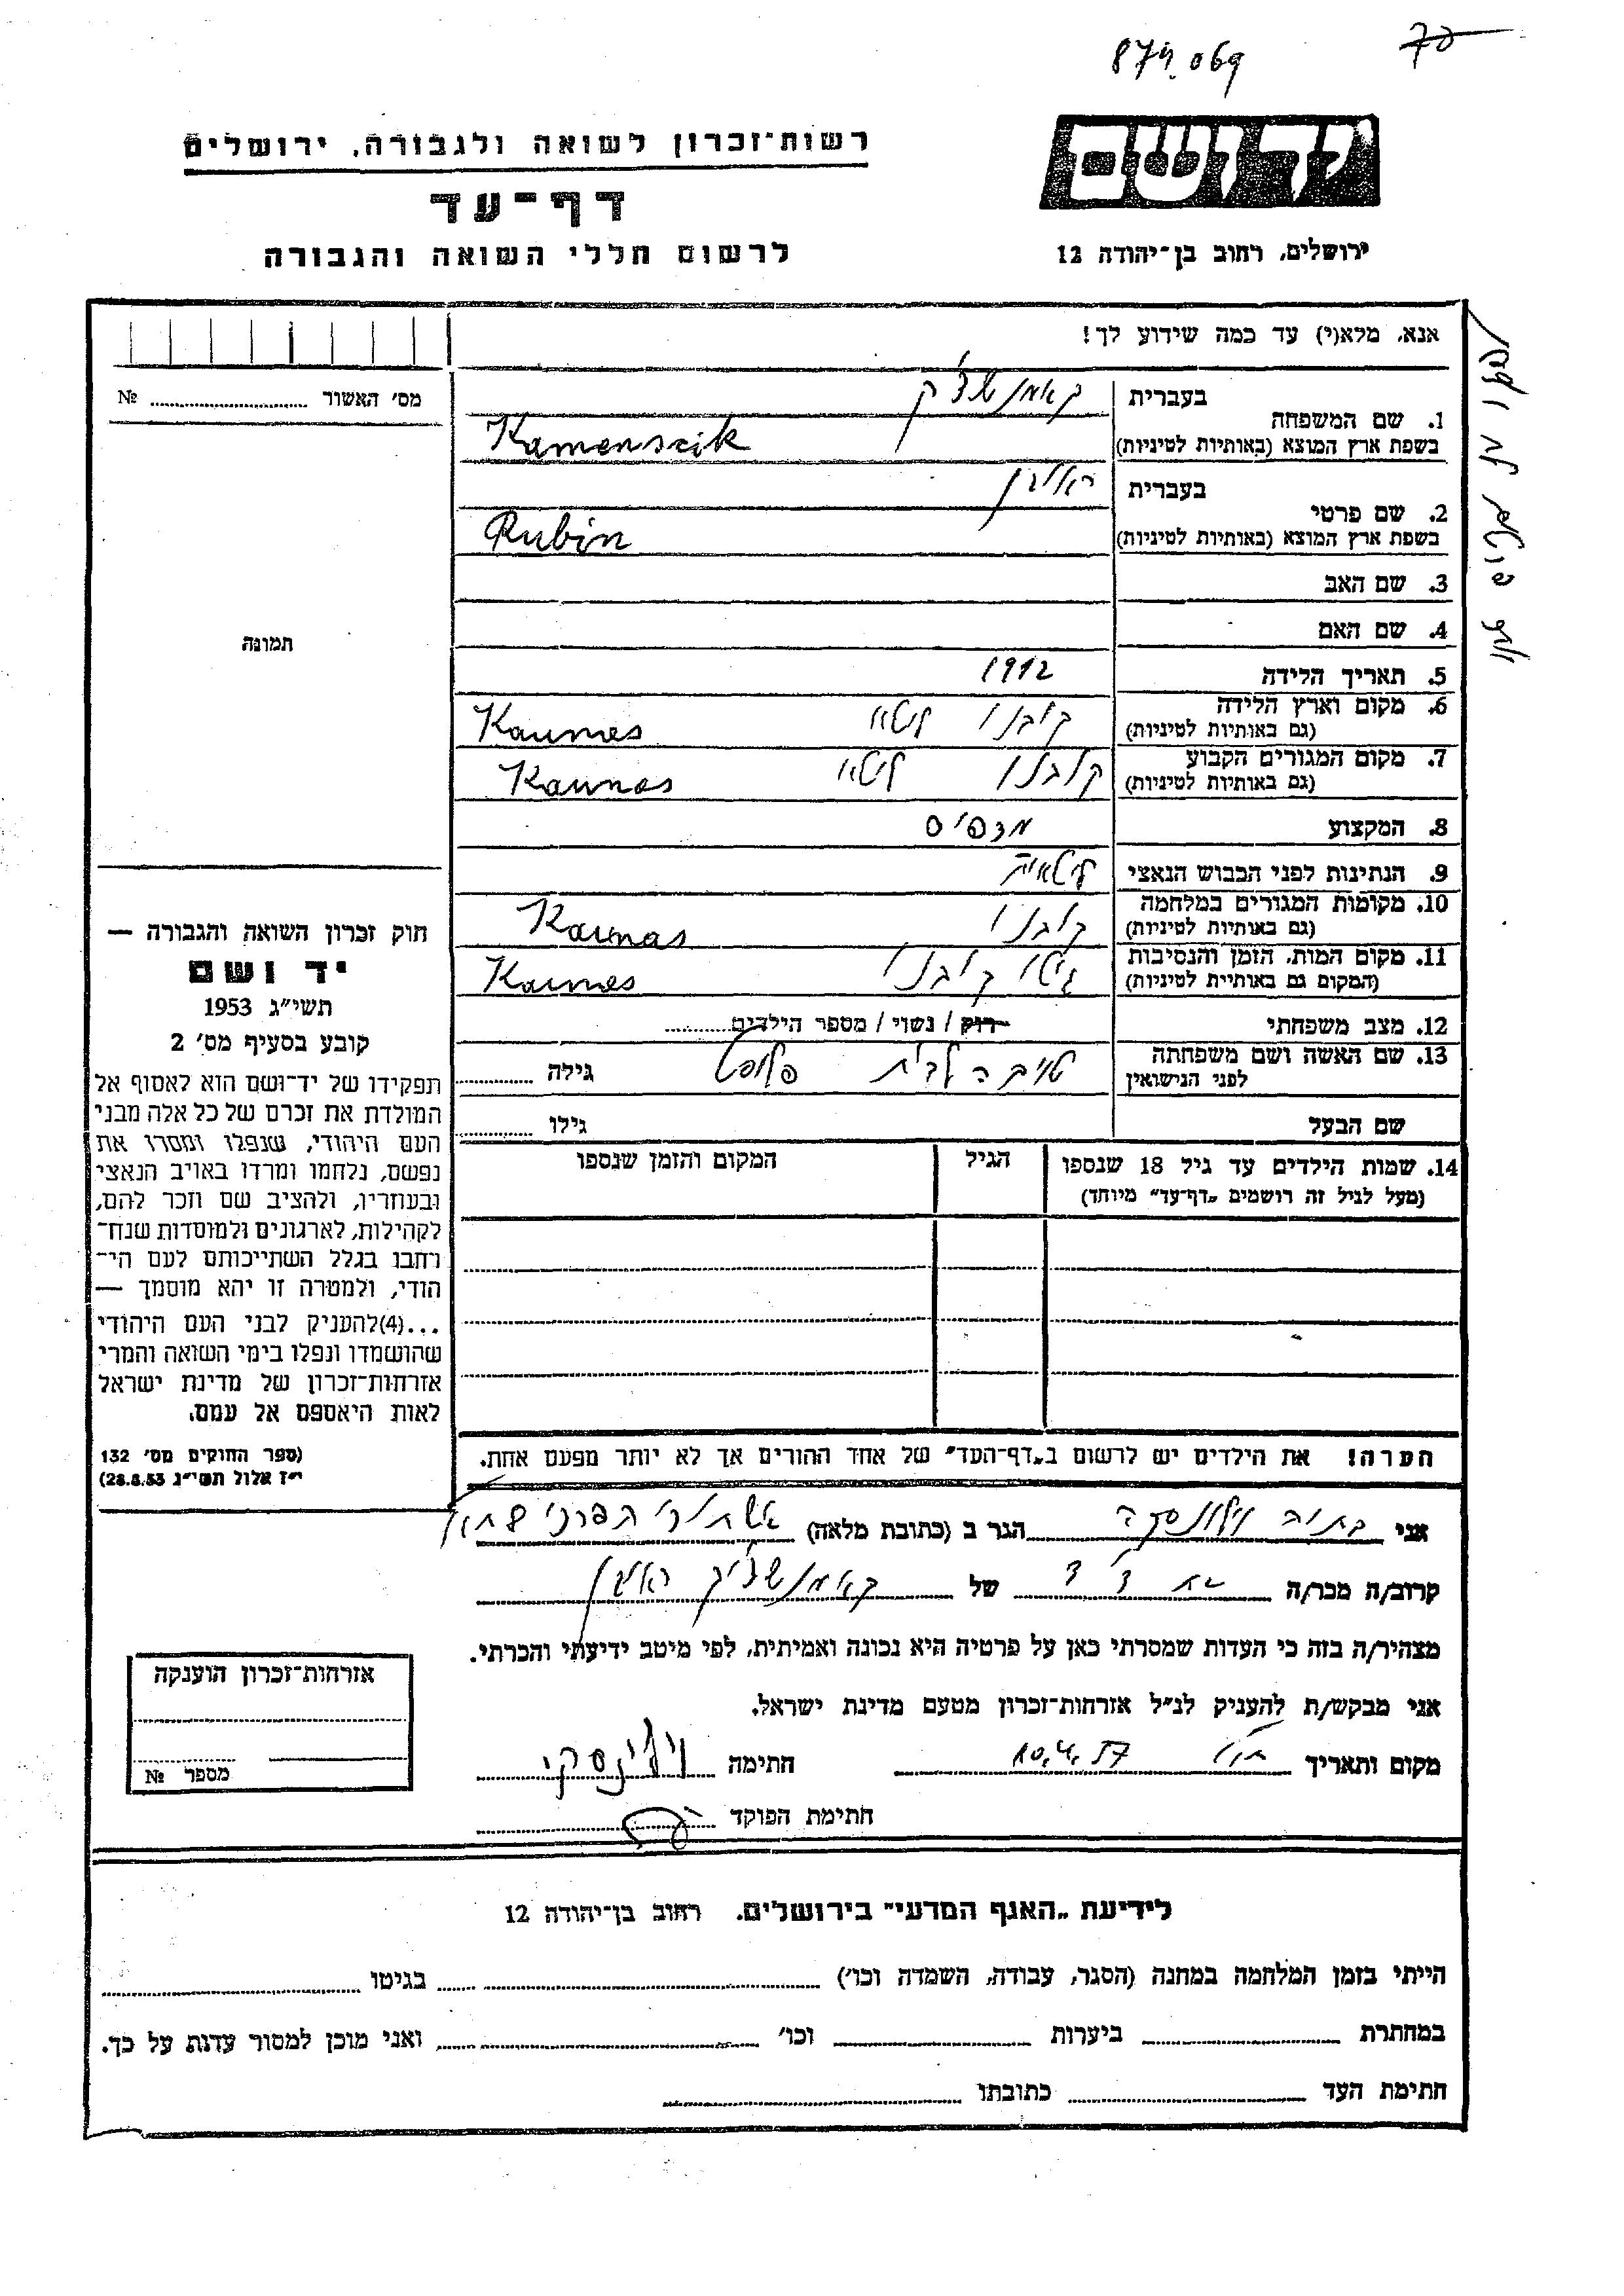 874069
70
רשות־זכרון לשואה ולגבורה, ירושלים
יד ושם
דף־עד
לרשום חללי השואה והגבורה
ירושלים, רחוב בן־יהודה 12
אנא, מלא(י) עד כמה שידוע לך!
מס׳ האשור № ........
בעברית
1. שם המשפחה
בשפת ארץ המוצא (באותיות לטיניות)
קאמנשציק
Kamenscik
בעברית
2. שם פרטי
בשפת ארץ המוצא (באותיות לטיניות)
ראובן
Rubin
3. שם האב
4. שם האם
תמונה
5. תאריך הלידה 1912
6. מקום וארץ הלידה קובנו ליטא Kaunas
(גם באותיות לטיניות)
7. מקום המגורים הקבוע קובנו ליטא Kaunas
(גם באותיות לטיניות)
8. המקצוע מדפיס
9. הנתינות לפני הכבוש הנאצי ליטאית
10. מקומות המגורים במלחמה קובנו Kaunas
(גם באותיות לטיניות)
11. מקום המות, הזמן והנסיבות גיטו קובנו Kaunas
(המקום גם באותיית לטיניות)
12. מצב משפחתי רוק / נשוי / מספר הילדים ........
13. שם האשה ושם משפחתה טויבה לבית גילה ........
לפני הנישואין
שם הבעל גילו ........
14. שמות הילדים עד גיל 18 שנספו הגיל המקום והזמן שנספו
(מעל לגיל זה רושמים „דף־עד״ מיוחד)
חוק זכרון השואה והגבורה —
יד ושם
תשי״ג 1953
קובע בסעיף מס׳ 2
תפקידו של יד־ושם הוא לאסוף אל
המולדת את זכרם של כל אלה מבני
העם היהודי, שנפלו ומסרו את
נפשם, נלחמו ומרדו באויב הנאצי
ובעוזריו, ולהציב שם וזכר להם,
לקהילות, לארגונים ולמוסדות שנח־
רבו בגלל השתייכותם לעם הי־
הודי, ולמטרה זו יהא מוסמך —
...(4)להעניק לבני העם היהודי
שהושמדו ונפלו בימי השואה והמרי
אזרחות־זכרון של מדינת ישראל
לאות היאספם אל עמם.
(ספר החוקים מס׳ 132
י״ז אלול תשי״ג 28.8.53)
הערה! את הילדים יש לרשום ב„דף־העד״ של אחד ההורים אך לא יותר מפעם אחת.
אני בתיה וילונסקה הגר ב (כתובת מלאה)
קרוב/ה מכר/ה בת דוד של קאמנשציק ראובן
מצהיר/ה בזה כי העדות שמסרתי כאן על פרטיה היא נכונה ואמיתית, לפי מיטב ידיעתי והכרתי.
אני מבקש/ת להעניק לנ״ל אזרחות־זכרון מטעם מדינת ישראל.
מקום ותאריך 10.4.57 חתימה וילנסקי
חתימת הפוקד
אזרחות־זכרון הוענקה
מספר №
לידיעת „האגף המדעי״ בירושלים. רחוב בן־יהודה 12
הייתי בזמן המלחמה במחנה (הסגר, עבודה, השמדה וכו׳) ........ בגיטו ........
במחתרת ........ ביערות ........ וכו׳ ........ ואני מוכן למסור עדות על כך.
חתימת העד ........ כתובתו ........